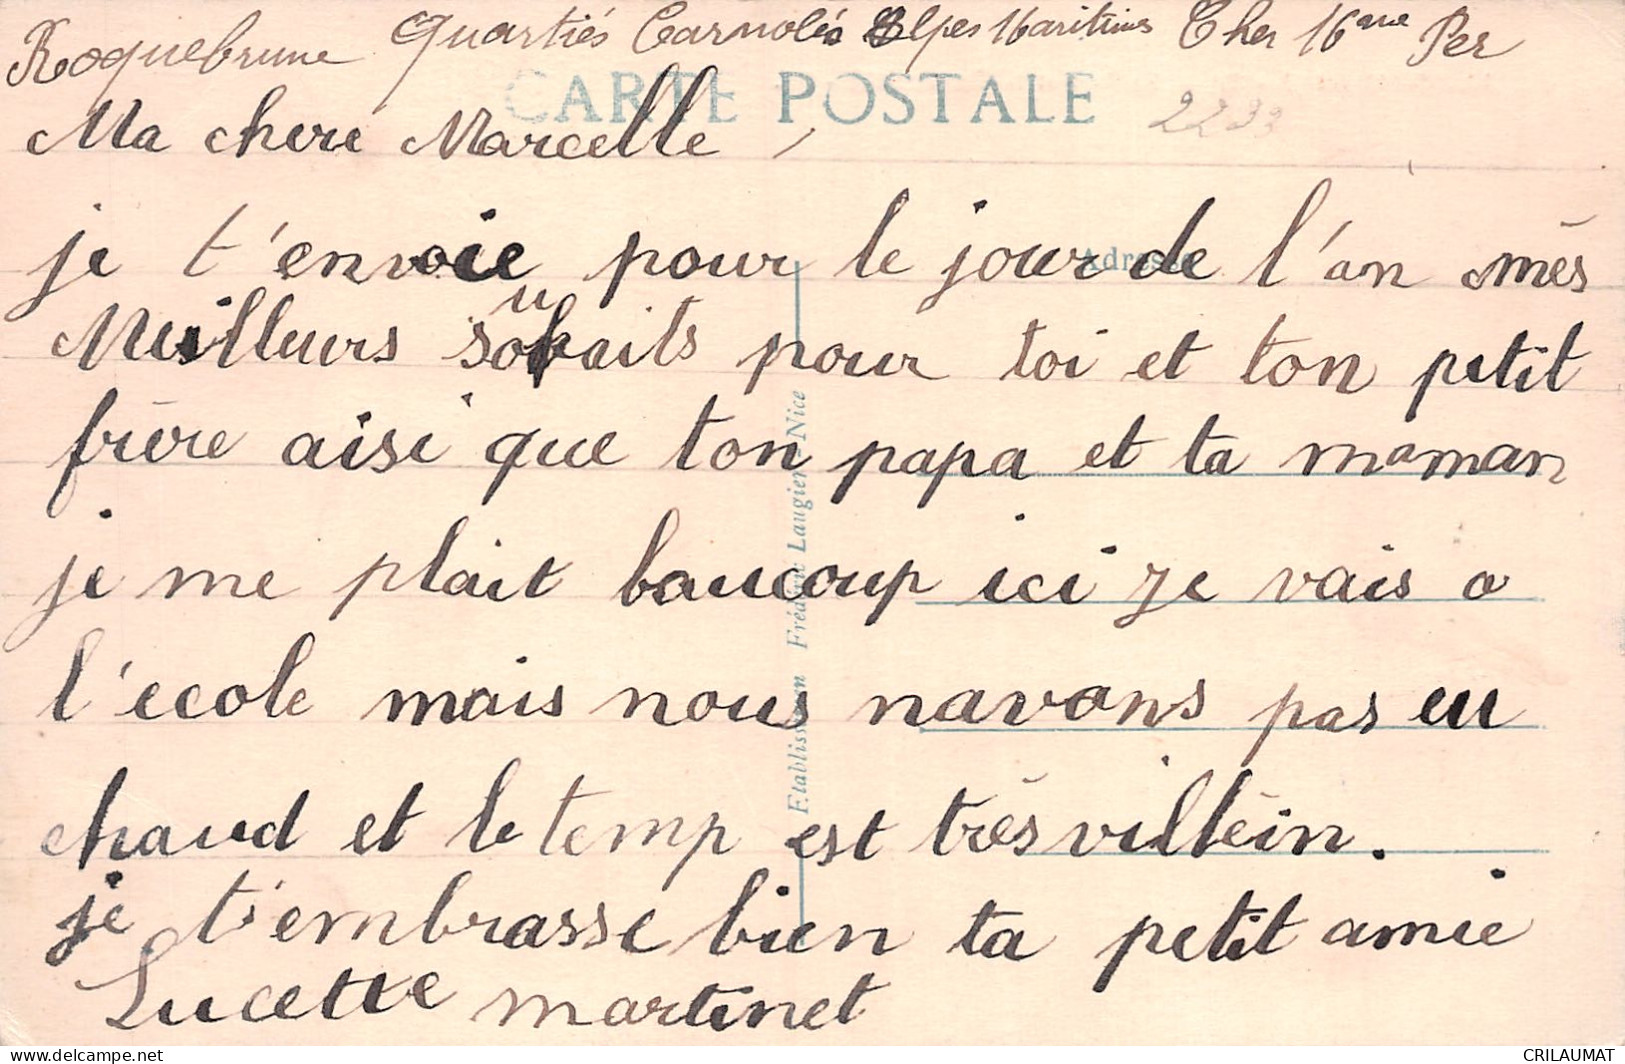 Roquebrune Quartiés Carnolés Alpes Maritimes Cher 16eme Per
CARTE POSTALE
2233
Ma chere Marcelle,
Adresse
je t'envoie pour le jour de l'an més
Meilleurs souhaits pour toi et ton petit
frère aisi que ton papa et ta maman
je me plait baucoup ici je vais a
l'ecole mais nous navons pas eu
chaud et le temp est très villein.
je t'embrasse bien ta petit amie
Lucette martinet
Etablissem Frédéric Laugier - Nice
CRILAUMAT